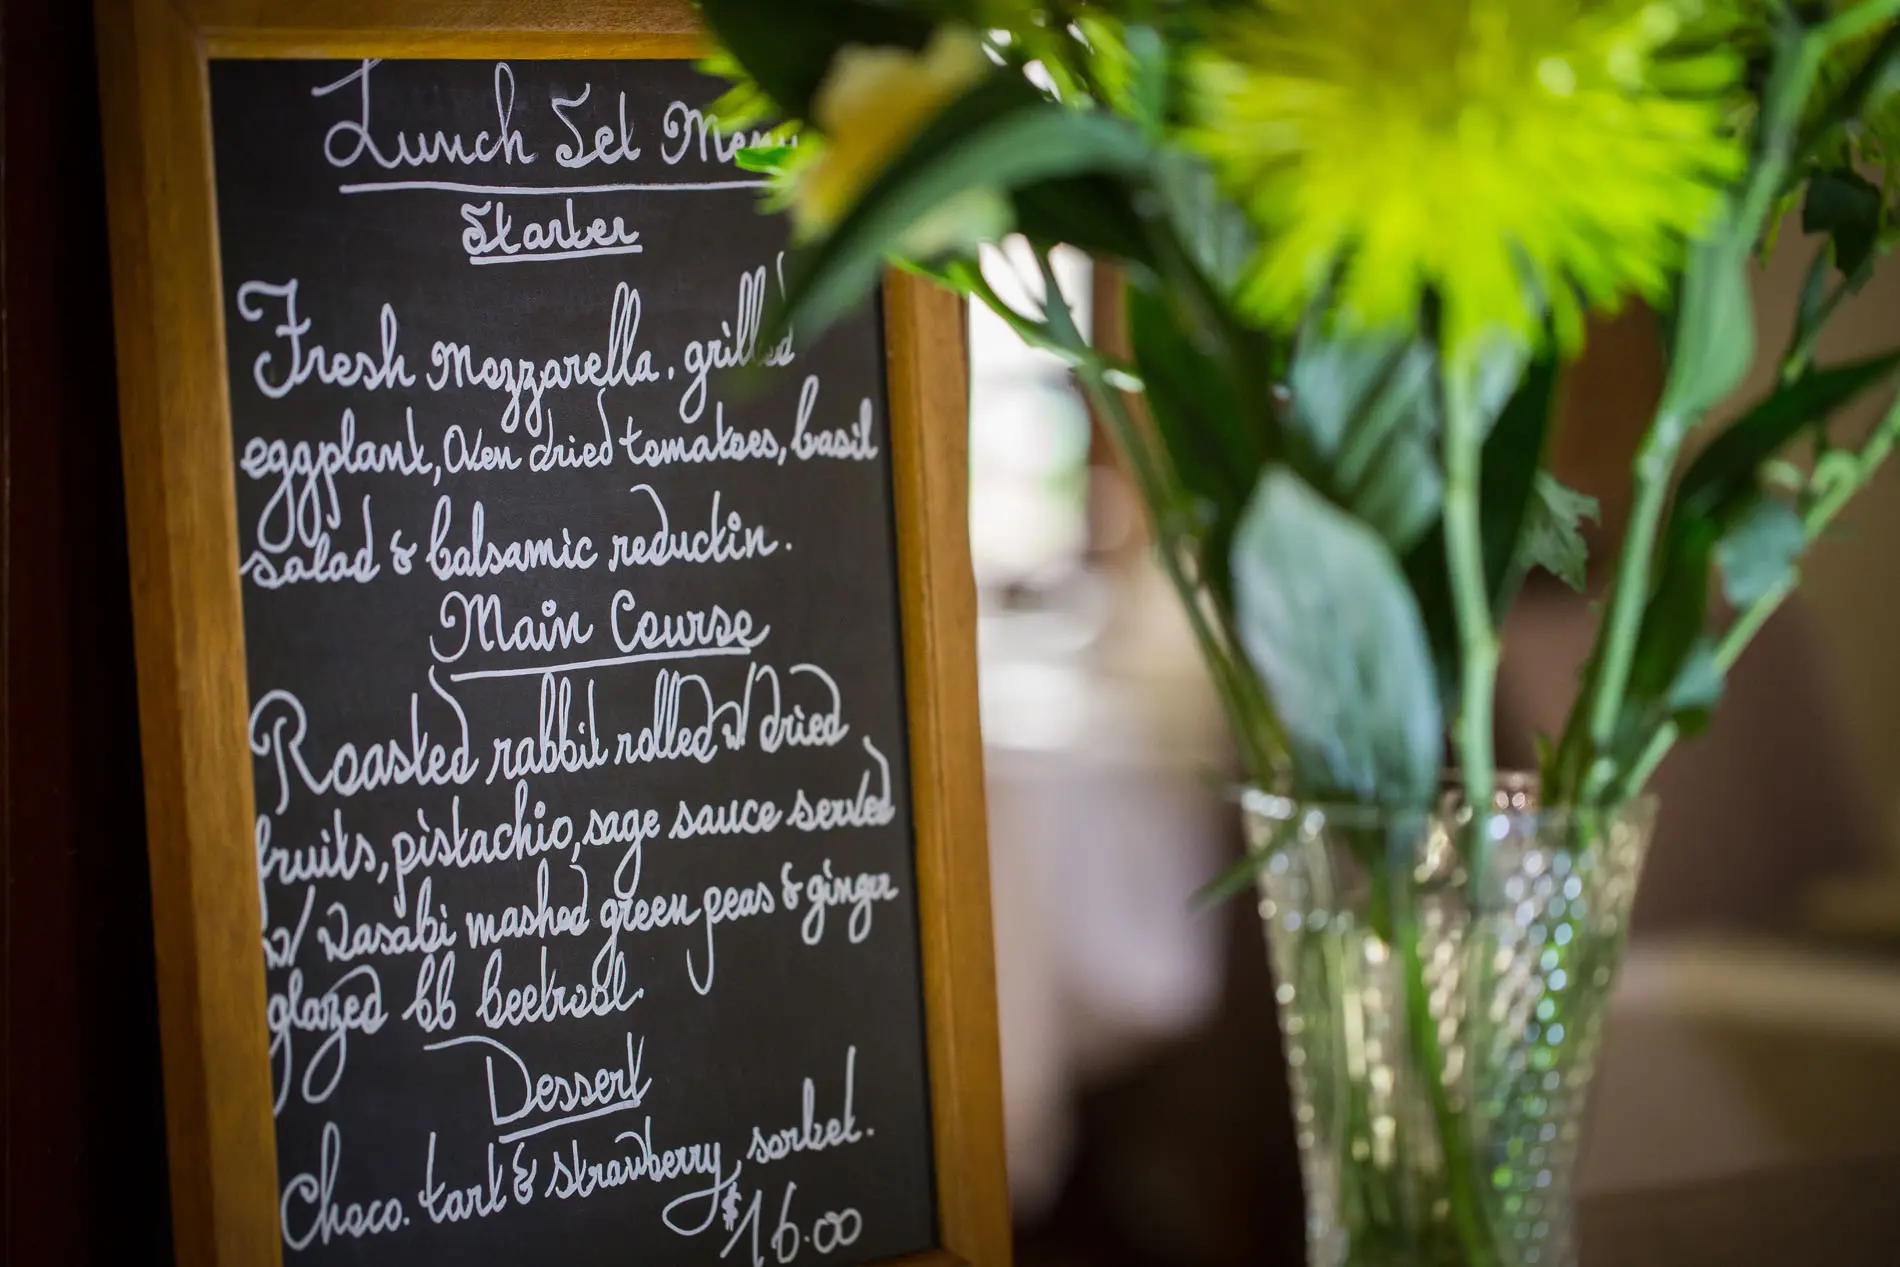 Lunch Set Menu
Starter
Fresh Mozzarella. grilled
eggplant, Oven dried tomatoes, basil
salad & balsamic reductin.
Main Course
Roasted rabbit rolled w/ dried
fruits, pistachio, sage sauce served
w/ Wasabi mashed green peas & ginger
glazed bb beetroot.
Dessert
Choco. tart & strawberry sorbet.
$16.00